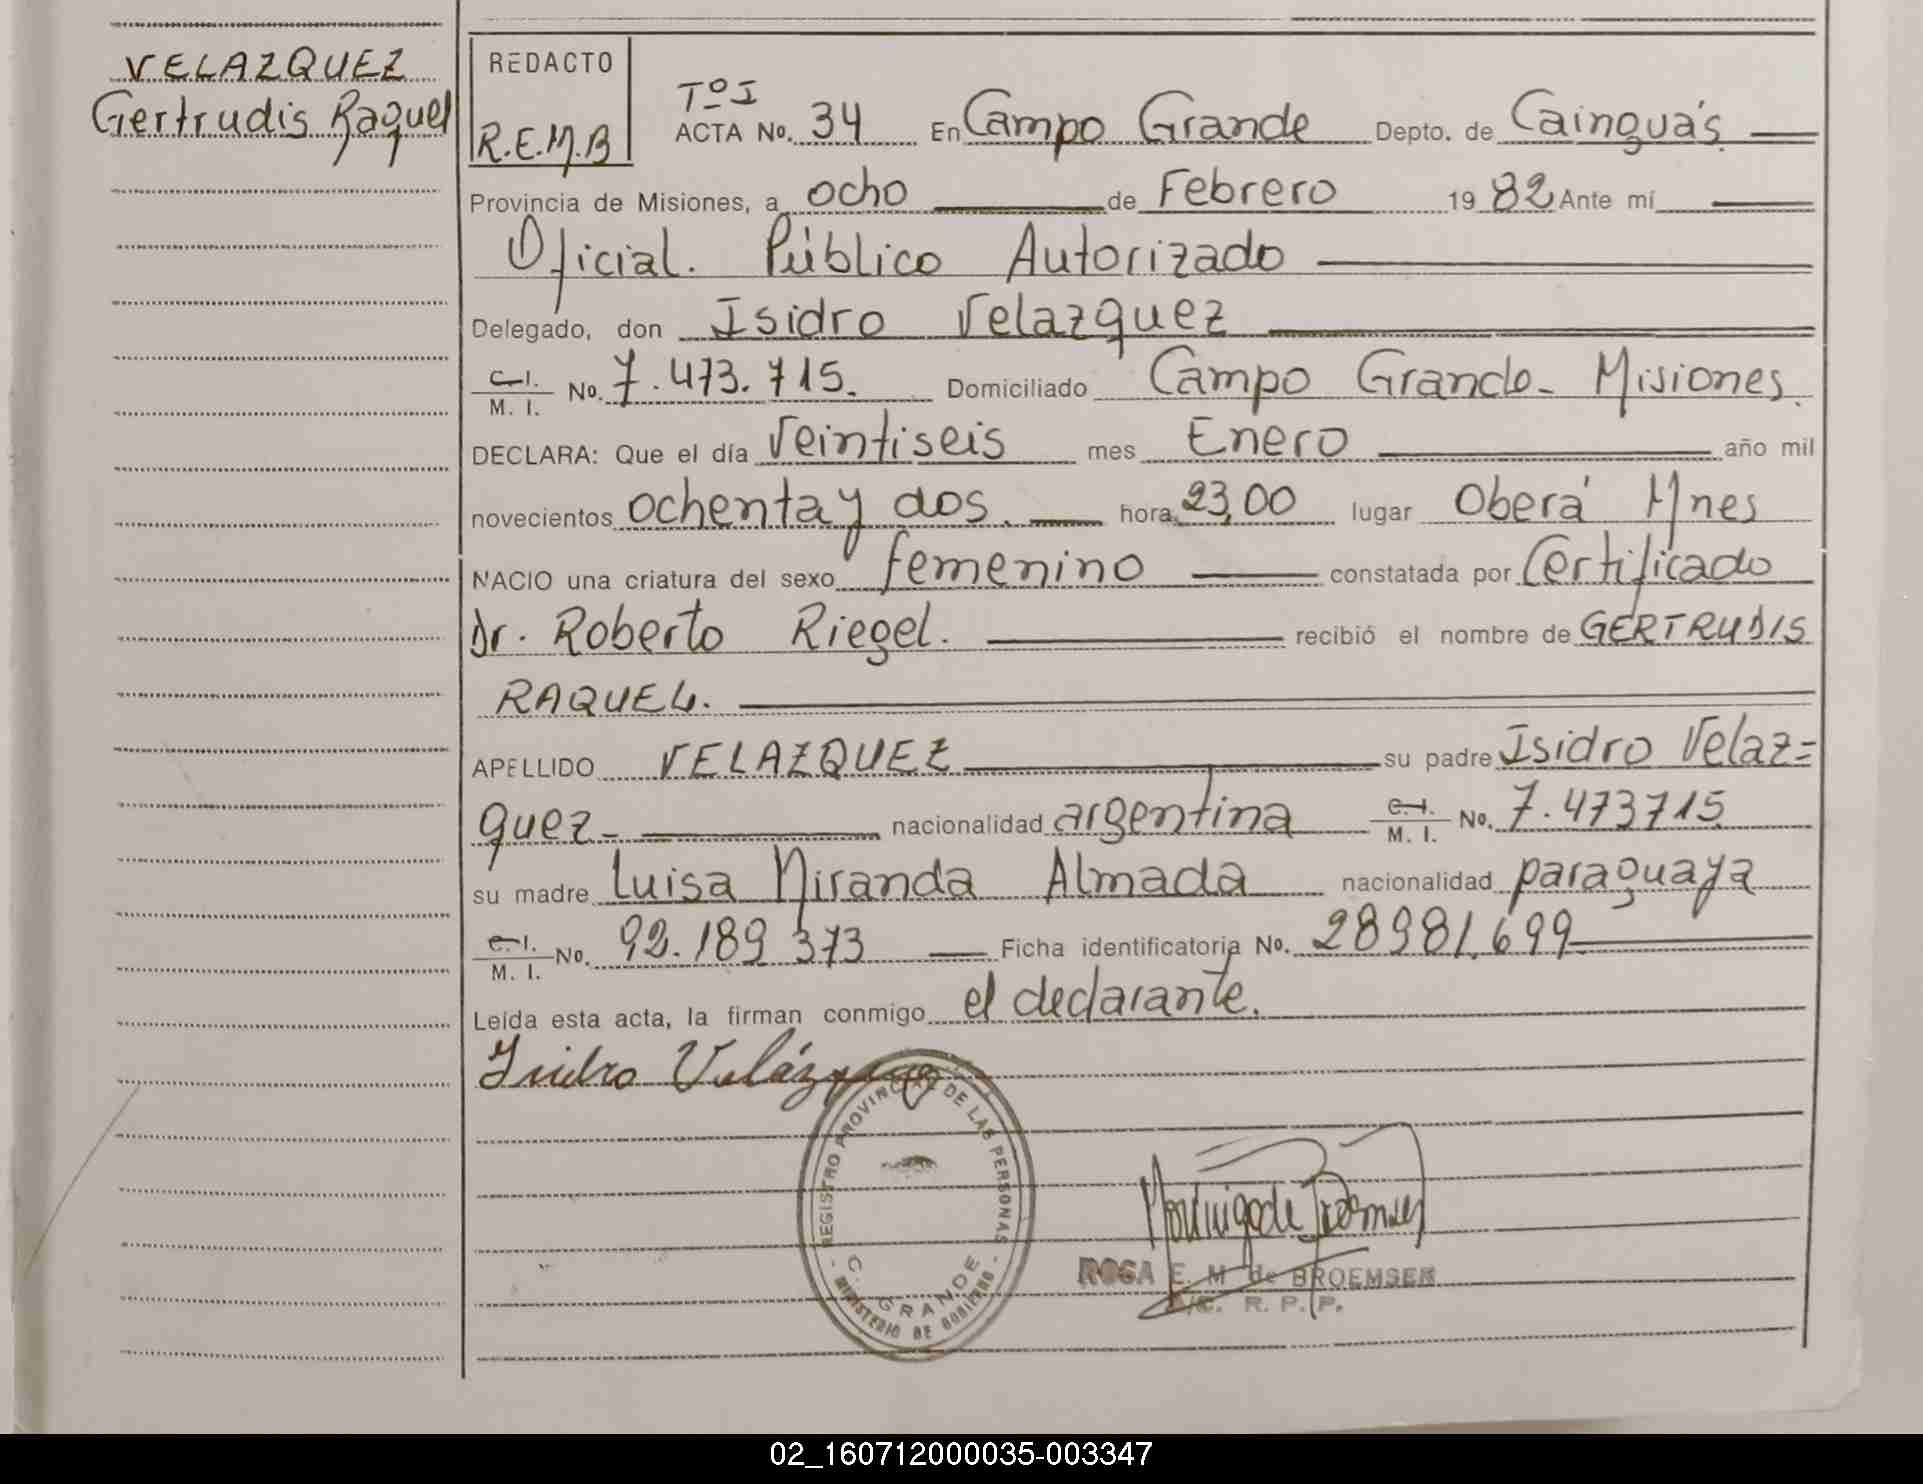 VELAZQUEZ
Gertrudis Raquel
REDACTO
R.E.M.B
Tº I
ACTA No. 34 En Campo Grande Depto. de Cainguás
Provincia de Misiones, a ocho de Febrero 1982 Ante mí
Oficial. Público Autorizado
Delegado, don Isidro Velazquez
C.I. M. I. No. 7.473.715. Domiciliado Campo Grande- Misiones.
DECLARA: Que el día Veintiseis mes Enero año mil
novecientos ochenta y dos. hora 23,00 lugar Oberá Mnes
NACIO una criatura del sexo femenino constatada por Certificado
Dr. Roberto Riegel. recibió el nombre de GERTRUDIS
RAQUEL.
APELLIDO VELAZQUEZ su padre Isidro Velaz=
quez- nacionalidad argentina C.I. M. I. No. 7.473715
su madre Luisa Miranda Almada nacionalidad paraguaya
C.I. M. I. No. 92.189 373 Ficha identificatoria No. 28981.699
Leída esta acta, la firman conmigo el declarante.
Isidro Velázquez
REGISTRO PROVINCIAL DE LAS PERSONAS
C. GRANDE
- MINISTERIO DE GOBIERNO -
ROSA E. M de BROEMSEN
A/C. R. P. P.
02_160712000035-003347